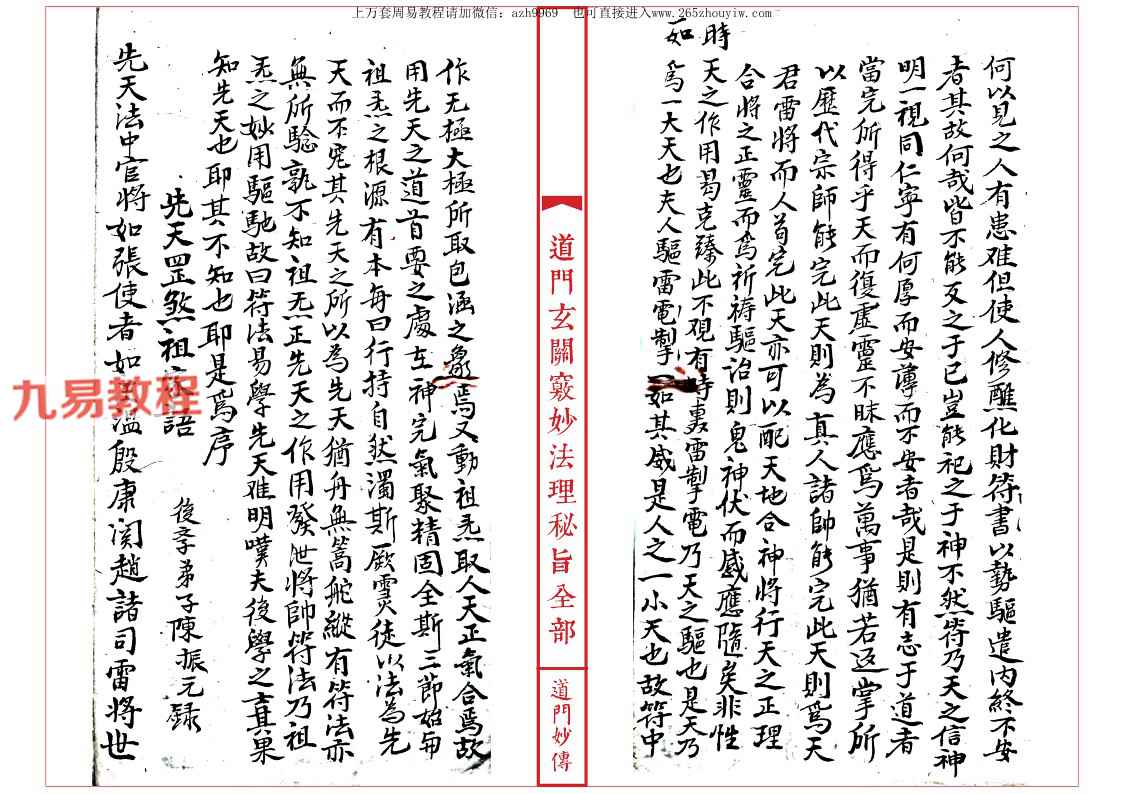 上万套周易教程请加微信：azh9969 也可直接进入www.265zhouyiw.com
何以見之人有患难但使人修醮化財符書以勢驅遣内終不安
者其故何哉皆不能反之于已豈能祀之于神不然符乃天之信神
明一視同仁寧有何厚而安薄而不安者哉是則有志于道者
當完所得乎天而復虚靈不昧應爲萬事猶若返掌所
以歷代宗師能完此天則為真人諸帥能完此天則爲天
君雷將而人苟完此天亦可以配天地合神將行天之正理
合將之正靈而爲祈禱驅治則鬼神伏而感應隨矣非性
時
天之作用曷克臻此不覌有時轟雷掣電乃天之驅也是天乃
如
爲一大天也夫人驅雷電掣如其威是人之一小天也故符中
道門玄關竅妙法理秘旨全部
道門妙傳
作无極大極所取包涵之象焉又動祖炁取人天正氣合爲故
用先天之道首要之處在神完氣聚精固全斯三節始可
祖炁之根源有本每曰行持自然濁斯厥灵徒以法為先
天而不完其先天之所以為先天猶舟無篙舵縱有符法亦
無所驗孰不知祖炁正先天之作用發泄將帥符法乃祖
炁之妙用驅馳故曰符法易學先天难明嘆夫後學之士其果
知先天也耶其不知也耶是爲序
後李弟子陳振元録
先天罡煞祖家語
先天法中官將如張使者如温殷康関趙諸司雷將世
九易教程